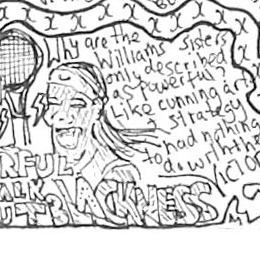 Why are the
Williams sisters
only described
as powerful?
Like cunning and
strategy
had nothing
to do with the
RFUL
BLACKNESS